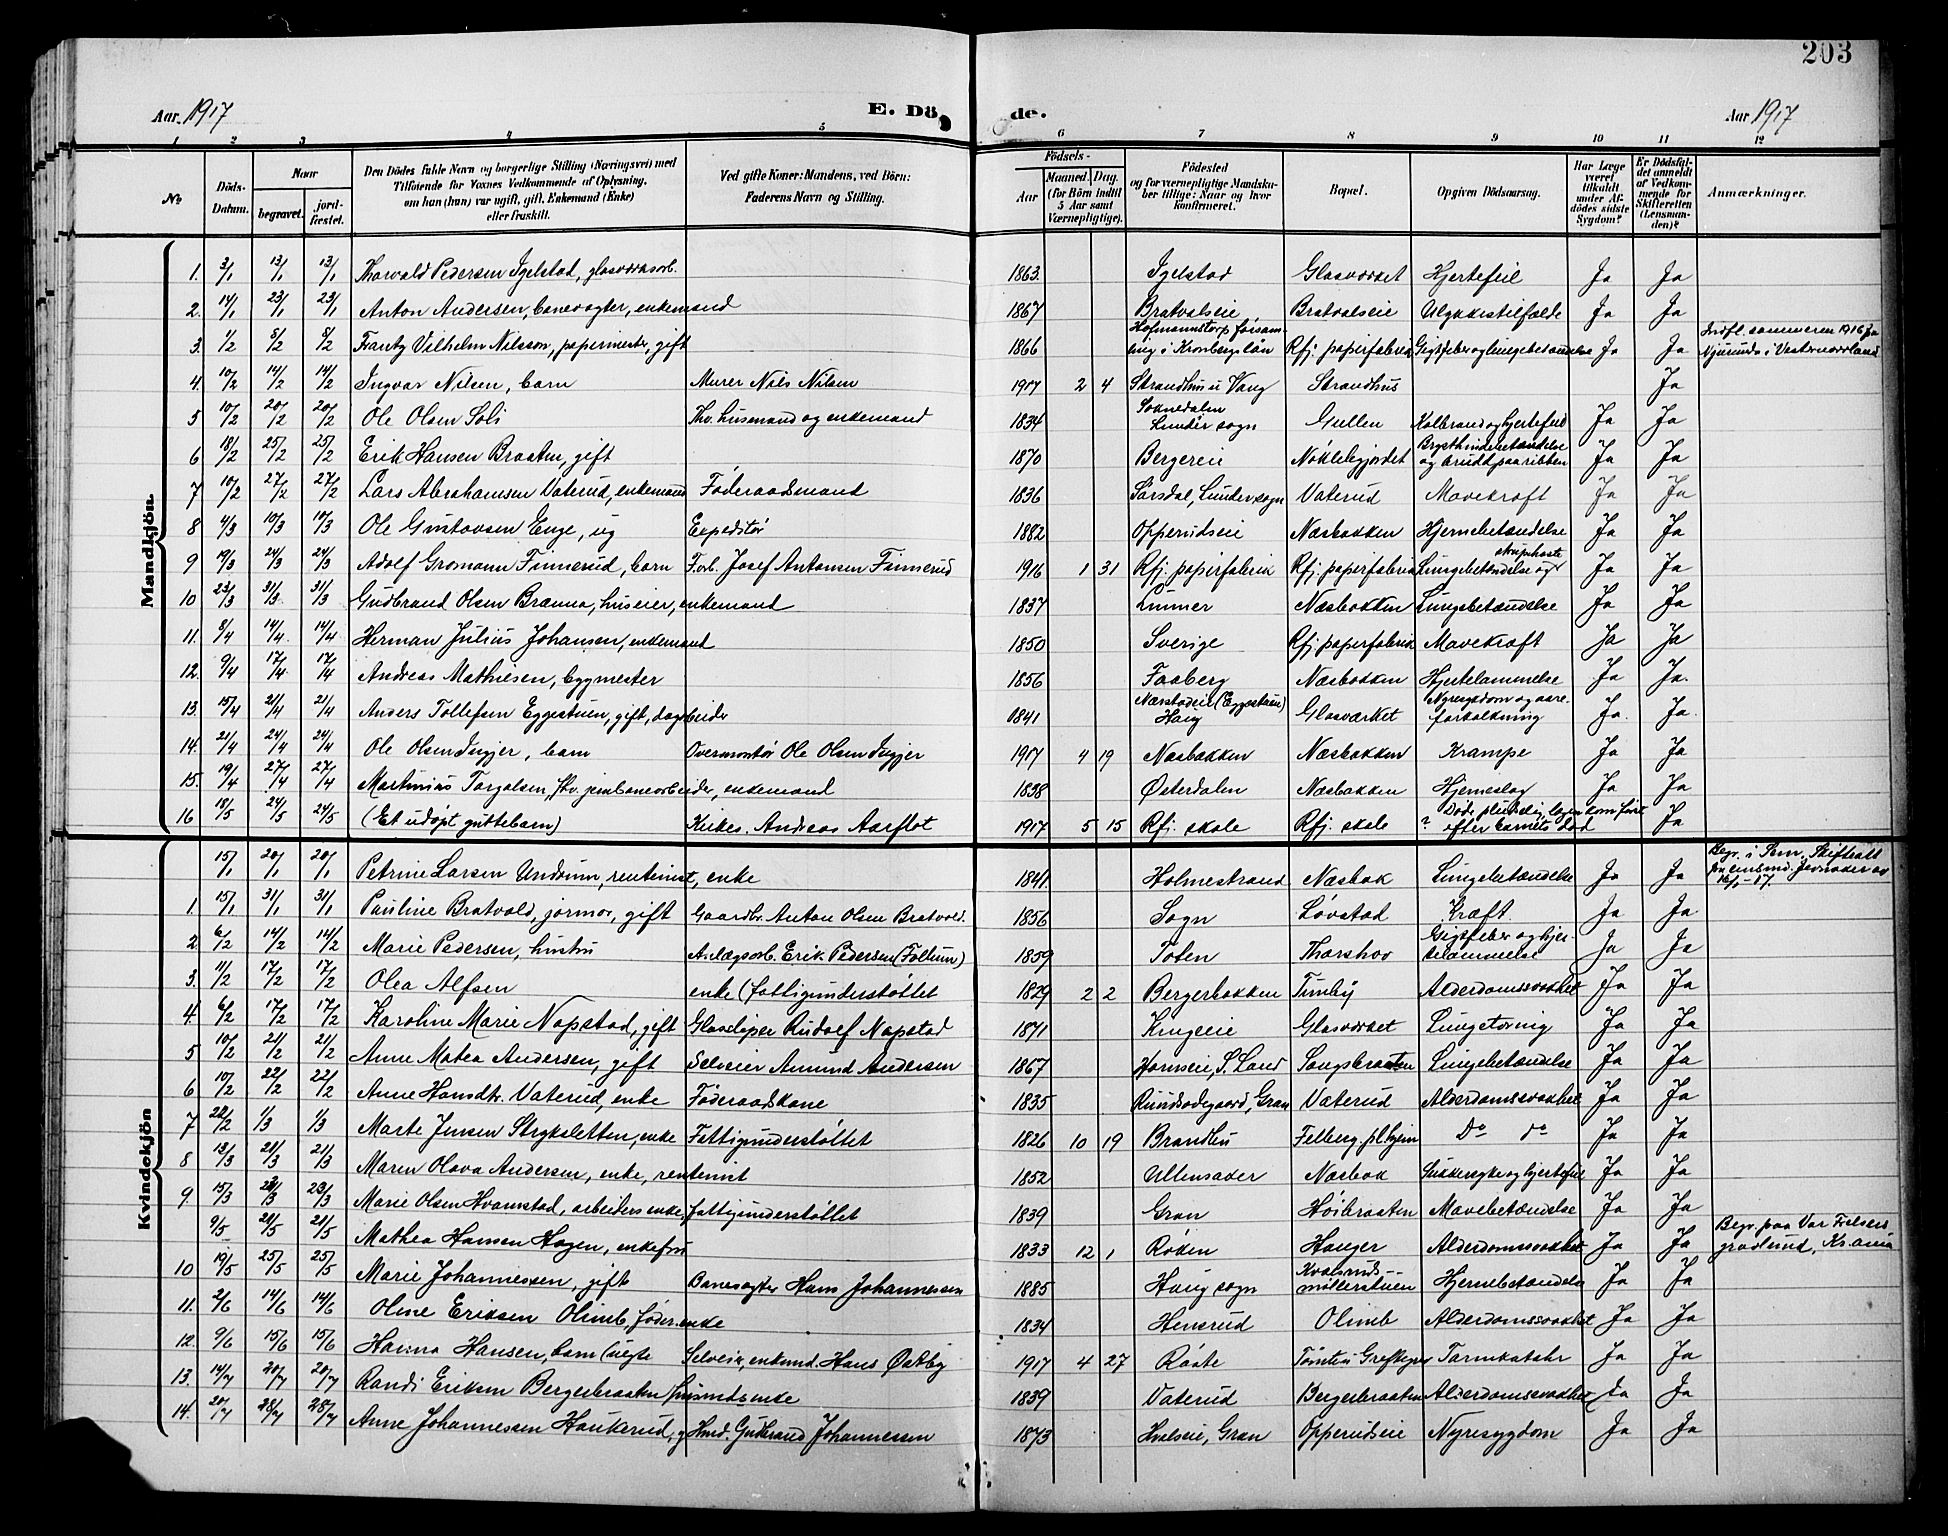 203
Aar 1917 E. Dö de. Aar 1917
1 2 3 4 5 6 7 8 9 10 11 12
No
Döds-Datum.
Naar begravet. jordfæstet.
Den Dödes fulde Navn og borgerlige Stilling (Næringsvei) med Tilföiende for Voxnes Vedkommende af Oplysning, om han (hun) var ugift, gift, Enkemand (Enke) eller fraskilt.
Ved gifte Koner: Mandens, ved Börn: Faderens Navn og Stilling.
Födsels-
Aar Maaned. Dag. (for Börn indtil 5 Aar samt Værnepligtige).
Födested og for værnepligtige Mandskaber tillige: Naar og hvor konfirmeret.
Bopæl.
Opgiven Dödsaarsag.
Har Læge været tilkaldt under Afdödes sidste Sygdom?
Er Dödsfaldet anmeldt af Vedkommende for Skifteretten (Lensmanden)?
Anmærkninger.
Mandkjön.
1. 3/1 13/1 13/1 Thorvald Pedersen Igelstad, glasværksarb. 1863 Igelstad Glasværket Hjertefeil Ja Ja
2. 14/1 23/1 23/1 Anton Andersen, banevogter, enkemand 1867 Bratvalseie Bratvalseie Ulykkestilfælde Ja Ja
3. 1/2 8/2 8/2 Frantz Vilhelm Nilsson, papermester, gift 1866 Hofmannstorp forsamling i Kronbergslän Rfj. paperfabrik Gigtfeber og lungebetændelse Ja Ja Indfl. sommeren 1916 fra Njurunda i Vesternorrland
4. 10/2 14/2 14/2 Ingvar Nilsen, barn Murer Nils Nilsen 1917 2 4 Strandhus i Vang Strandhus Ja
5 10/2 20/2 20/2 Ole Olsen Soli Fhv. husmand og enkemand 1834 Soknedalen Lunder sogn Gullen Kolbrand og hjertefeil Ja Ja
6 18/2 25/2 25/2 Erik Hansen Braaten, gift 1870 Bergereie Nøklebygjordet Brysthindebetændelse og brudd paa ribben Ja Ja
7 10/2 27/2 27/2 Lars Abrahamsen Vaterud, enkemand Føderaadsmand 1836 Sørsdal, Lunder sogn Vaterud Mavekræft Ja Ja
8 4/3 10/3 10/3 Ole Gustavsen Enge, ug Expeditør 1882 Opperudseie Næsbakken Hjernebetændelse Ja Ja
9 19/3 24/3 24/3 Adolf Gromann Finnerud, barn F. arb. Josef Antonsen Finnerud 1916 1 31 Rfj. paperfabrik Rfj. paperfabrik Lungebetændelse og strupehoste Ja Ja
10 23/3 31/3 31/3 Gudbrand Olsen Branna, huseier, enkemand 1837 Lunner Næsbakken Lungebetændelse Ja Ja
11. 8/4 14/4 14/4 Herman Julius Johansen, enkemand 1850 Sverige Rfj. paperfabrik Mavekræft Ja Ja
12. 9/4 17/4 17/4 Andreas Mathiesen, bygmester 1856 Faaberg Næsbakken Hjertelammelse Ja Ja.
13. 15/4 21/4 21/4 Anders Tollefsen Eggestuen, gift, dagarbeider 1841 Næstadeie (Eggestuen) Haug Glasværket Nyresygdom og aareforkalkning Ja. Ja.
14. 21/4 24/4 24/4 Ole Olsen Ingjer, barn Overmontør Ole Olsen Ingjer 1917 4 19 Næsbakken Næsbakken Krampe Ja Ja
15. 19/4 27/4 27/4 Martinius Torgalsen, fhv. jernbanearbeider, enkemand 1838 Østerdalen Næsbakken Hjerneslag Ja Ja
16 18/5 24/5 24/5 (Et udøpt guttebarn) Kirkes. Andreas Aarflot 1917 5 15 Rfj. skole Rfj. skole ? Døde pludselig, lægen kom først efter barnets død Ja
Kvindekjön
15/1 20/1 20/1 Petrine Larsen Undrum, rentenist, enke 1841. Holmestrand Næsbak Lungebetændelse Ja Ja Begr. i Sem. Skifteatt. fra lensmd. Jevnaker av 16/1-17.
1. 15/1 31/1 31/1 Pauline Bratvold, jormor, gift Gaardbr. Anton Olsen Bratvold. 1856 Sogn Løvstad Kræft. Ja Ja
2 6/2 14/2 14/2 Marie Pedersen, hustru Anlægsarb. Erik Pedersen (Follum) 1859 Toten Thorshov Gigtfeber og hjertelammelse Ja Ja
3. 11/2 17/2 17/2 Olea Alfsen enke (fattigunderstøttet 1829 2 2 Bergerbakken Tømby Alderdomssvakhet Ja Ja
4. 6/2 17/2 17/2 Karoline Marie Nøpstad, gift Glassliper Rudolf Nøpstad 1871 Krugeie Glasværket Lungetæring Ja Ja
5 10/2 21/2 21/2 Anne Matea Andersen, gift Selveier Amund Andersen 1867 Hornseie, S. Land Sangsbraaten Lungebetændelse Ja Ja
6 10/2 22/2 22/2 Anne Hansdtr. Vaterud, enke Føderaadskone 1835 Rundsodegaard, Gran Vaterud Alderdomssvakhet Ja Ja
7 22/2 1/3 1/3 Marte Jensen Stryksletten, enke Fattigunderstøttet 1826 10 19 Brandbu Felberg pl.hjem Do do Ja Ja
8 13/3 21/3 21/3 Maren Olava Andersen, enke, rentenist 1852 Ullensaker Næsbak Sukkersyke og hjertefeil Ja Ja
9. 15/3 23/3 23/3 Marie Olsen Hvamstad, arbeiders enke, fattigunderstøttet 1839 Gran Høibraaten Mavebetændelse Ja Ja
9/5 21/5 21/5 Mathea Hansen Hagen, enkefru 1833 12 1 Røken Hauger Alderdomssvakhet Ja Ja Begr. paa Vor Frelsers gravlund, Kr.ania
10 19/5 25/5 25/5 Marie Johannessen, gift Banevogter Hans Johannessen 1885 Haug sogn Kvælsruds-møllerstuen Hjernebetændelse Ja Ja
11. 2/6 14/6 14/6 Oline Eriksen Olimb, føder.enke 1834 Hensrud Olimb Alderdomssvakhet Ja Ja
12. 9/6 15/6 15/6 Hanna Hansen, barn (uegte Selveier, enkemd. Hans Østby 1917 4 27 Roate Tarmkatahr Ja Ja
13. 14/7 20/7 20/7 Randi Eriksen Bergerbraaten husmdsenke 1839 Vaterud Bergerbraaten Alderdomssvakhet Ja Ja
14. 20/7 28/7 28/7 Anne Johannessen Haukerud, g Hmd. Gudbrand Johannessen 1873 Hvalseie, Gran Opperudseie Nyresygdom Ja Ja